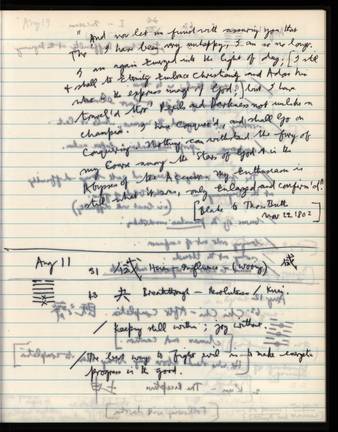 "And now let me finish with assuring you that
Tho' I have been very unhappy, I am so no longer.
I am again Emerged into the light of day; [I still
& shall to Eternity Embrace Christianity and Adore him
who is the Express image of God;] but I have
travel'd thro' Perils and Darkness not unlike a
Champion. I have Conquer'd, and shall Go on
Conquering. Nothing can withstand the fury of
my Course among the Stars of God & in the
Abysses of the Accuser. My Enthusiasm is
still what it was, only Enlarged and confirm'd."
[Blake to Thos Butts
Nov 22 1802]
Aug 11
31 咸 Hsien - Influence - (Wooing) 咸
43 夬 Breakthrough - Resoluteness / Kuai
/ Keeping still within; Joy without
/ The best way to fight evil is to make energetic
progress in the good.